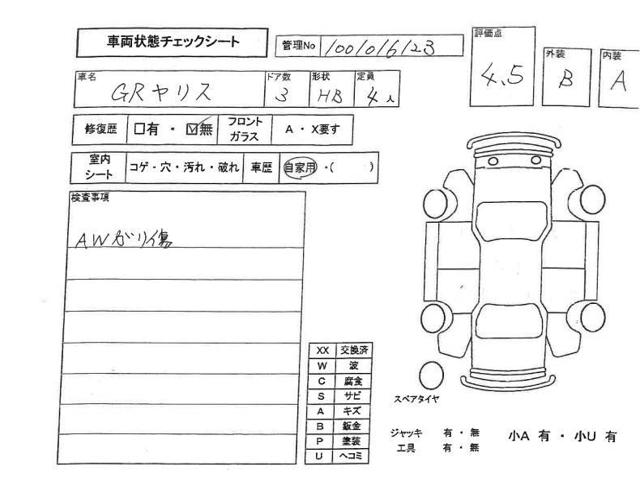 車両状態チェックシート
管理No 1001016123
評価点 4.5
外装 B
内装 A
車名 GRヤリス
ドア数 3
形状 HB
定員 4人
修復歴 □有・☑無
フロントガラス A・X要す
室内シート コゲ・穴・汚れ・破れ
車歴 自家用・( )
検査事項
AWガリ傷
XX 交換済
W 波
C 腐食
S サビ
A キズ
B 鈑金
P 塗装
U ヘコミ
スペアタイヤ
ジャッキ 有・無
工具 有・無
小A 有・小U 有